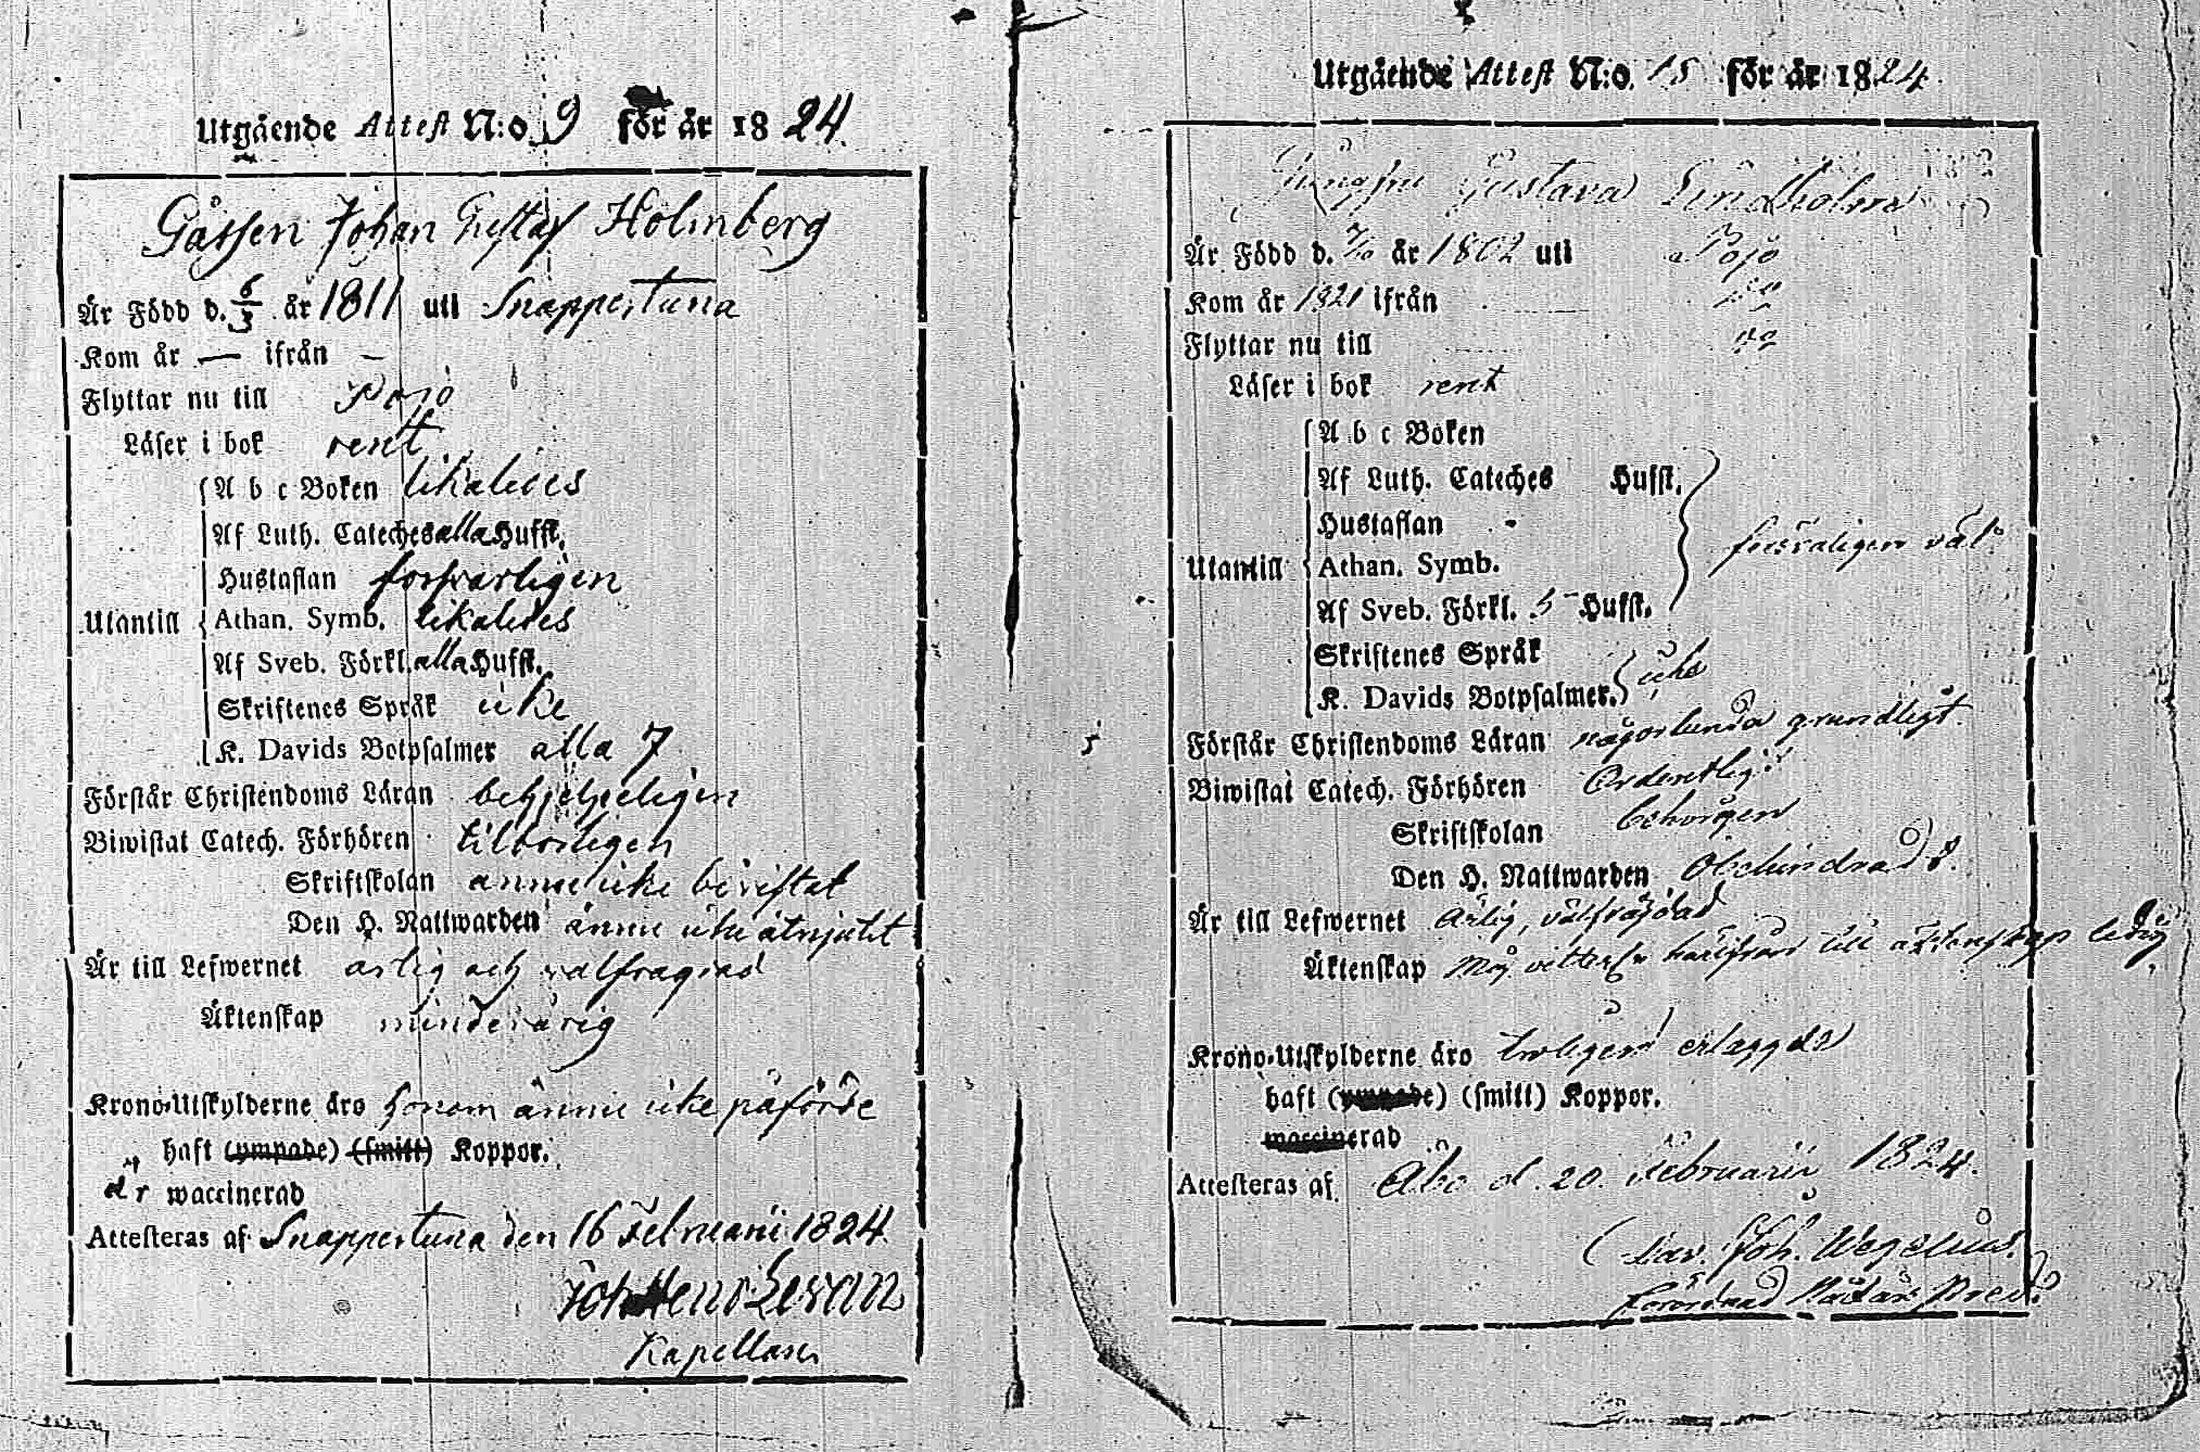 Utgående Attest N:o 9 för år 1824.
Gåssen Johan Gustaf Holmberg
Är Född d. 6/3 år 1811 uti Snappertuna
Kom år — ifrån —
Flyttar nu till Pojo
Läser i bok rent
A b c Boken likaledes
Af Luth. Cateches alla Hufst.
Hustaflan forsvarligen
Utantill Athan. Symb. likaledes
Af Sveb. Förkl. alla Hufst.
Skriftenes Språk icke
K. Davids Botpsalmer alla 7
Förstår Christendoms Läran
Biwistat Catech. Förhören tilborligen
Skriftskolan ännu icke bivistat
Den H. Nattwarden ännu icke åtnjutit
Är till Lefwernet ärlig och välfrägdad
Äktenskap minderårig
Krono-Utskylderne äro honom ännu icke påförde
haft (ympade) (smitt) Koppor.
är waccinerad
Attesteras af Snappertuna den 16 Februarii 1824
Joh Henr Levan
Kapellan
Utgående Attest N:o 15 för år 1824.
Jungfru Gustava Lindholm
Är Född d. 7/10 år 1802 uti Pojo
Kom år 1821 ifrån
Flyttar nu till
Läser i bok rent
A b c Boken
Af Luth. Cateches Hufst.
Hustaflan
Utantill Athan. Symb. försvarligen väl
Af Sveb. Förkl. 5 Hufst.
Skriftenes Språk
K. Davids Botpsalmer. icke
5 Förstår Christendoms Läran någorlunda grundligt
Biwistat Catech. Förhören Ordentligt
Skriftskolan behörigen
Den H. Nattwarden Obehindrad
Är till Lefwernet Ärlig, välfräjdad
Äktenskap Mig vitterl. härifrån till äktenskap ledig
Krono-Utskylderne äro troligen erlagde
haft (ympade) (smitt) Koppor.
waccinerad
Attesteras af Åbo d. 20. Februarii 1824.
Dav. Joh. Wegelius.
förordnad Pred.